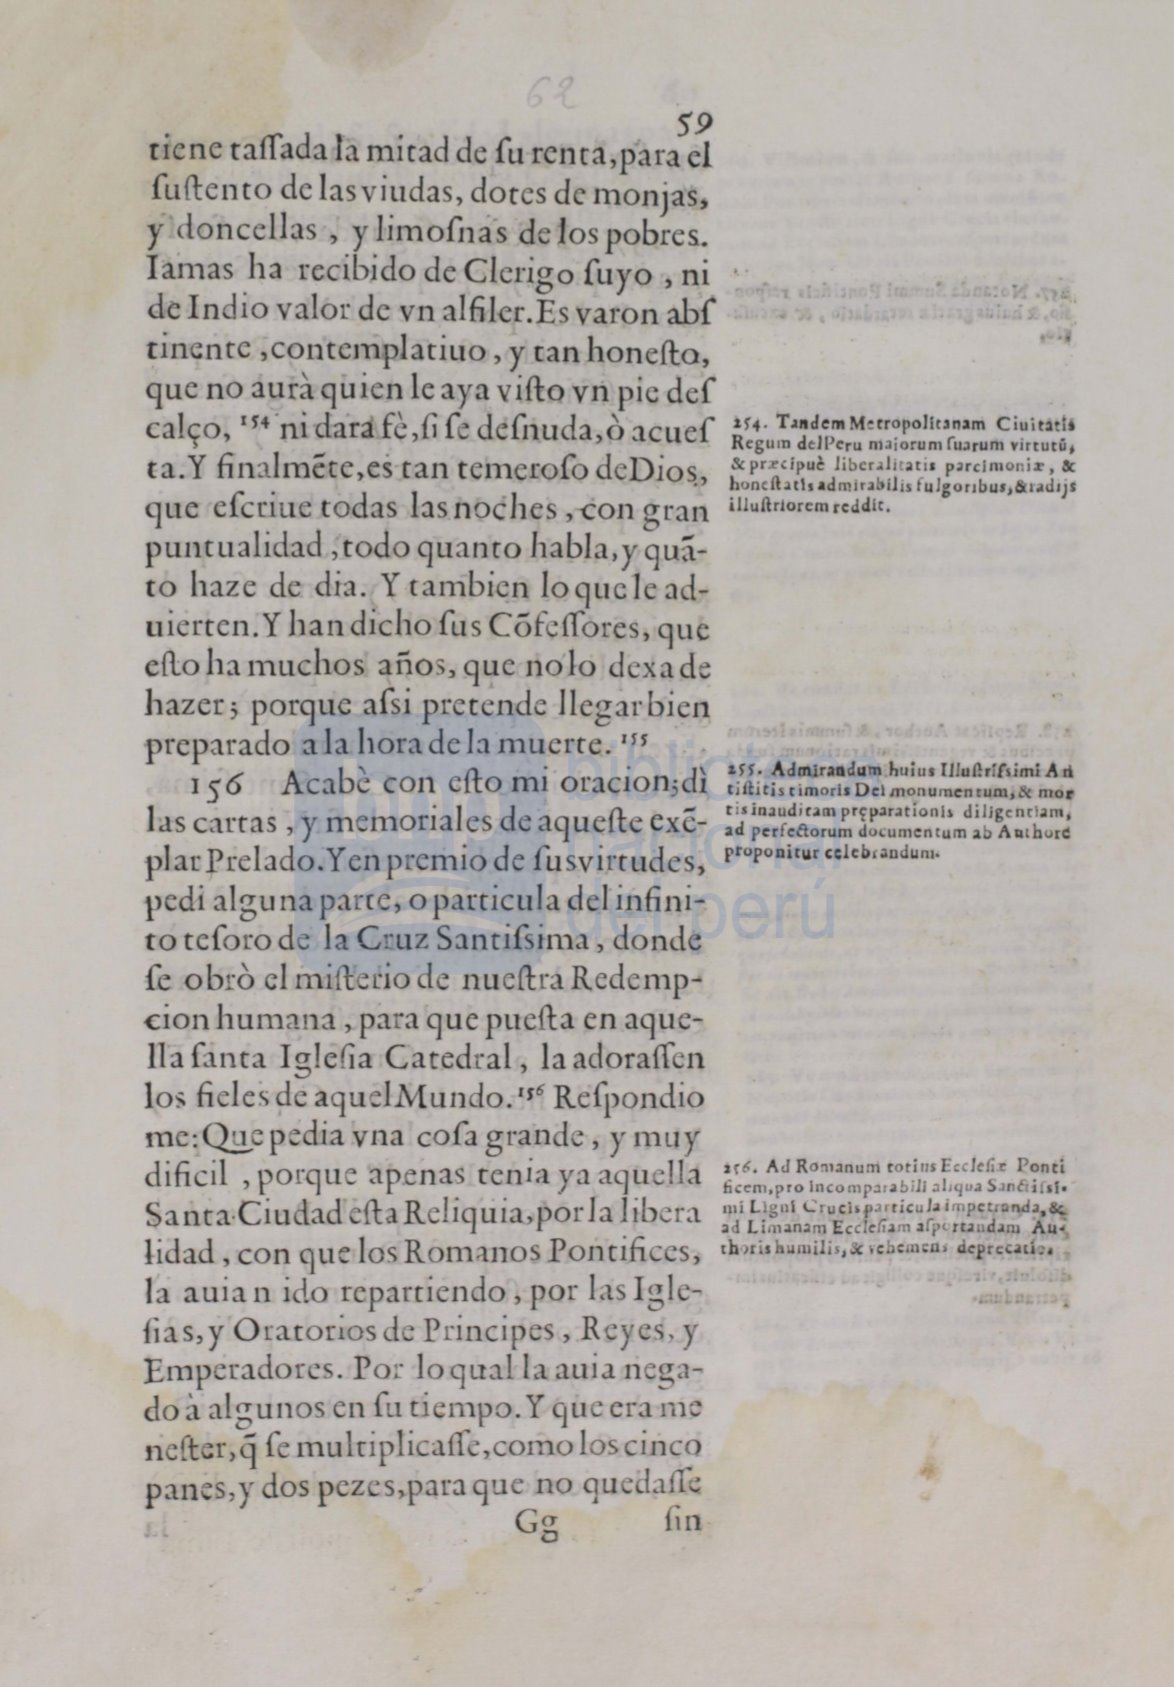 62
59
tiene taſſada la mitad de ſu renta, para el
ſuſtento de las viudas, dotes de monjas,
y doncellas , y limoſnas de los pobres.
Iamas ha recibido de Clerigo ſuyo , ni
de Indio valor de vn alfiler. Es varon abſ
tinente , contemplatiuo , y tan honeſto,
que no aurà quien le aya viſto vn pie deſ
calço, 154 ni dara fè, ſi ſe deſnuda, ò acueſ
ta. Y finalmẽte, es tan temeroſo de Dios,
que eſcriue todas las noches , con gran
puntualidad , todo quanto habla, y quã-
to haze de dia. Y tambien lo que le ad-
uierten. Y han dicho ſus Cõfeſſores, que
eſto ha muchos años, que no lo dexa de
hazer; porque aſsi pretende llegar bien
preparado a la hora de la muerte. 155
156 Acabè con eſto mi oracion; dì
las cartas , y memoriales de aqueſte exẽ-
plar Prelado. Y en premio de ſus virtudes,
pedi alguna parte, o particula del infini-
to teſoro de la Cruz Santiſsima , donde
ſe obrò el miſterio de nueſtra Redemp-
cion humana , para que pueſta en aque-
lla ſanta Igleſia Catedral , la adoraſſen
los fieles de aquel Mundo. 156 Reſpondio
me: Que pedia vna coſa grande , y muy
dificil , porque apenas tenia ya aquella
Santa Ciudad eſta Reliquia, por la libera
lidad , con que los Romanos Pontifices,
la auian ido repartiendo , por las Igle-
ſias, y Oratorios de Principes , Reyes, y
Emperadores. Por lo qual la auia nega-
do à algunos en ſu tiempo. Y que era me
neſter, q̃ ſe multiplicaſſe, como los cinco
panes, y dos pezes, para que no quedaſſe
Gg ſin
254. Tandem Metropolitanam Ciuitatis
Regum del Peru maiorum ſuarum virtutũ,
& præcipuè liberalitatis parcimoniæ, &
honeſtatis admirabilis fulgoribus, & radijs
illuſtriorem reddit.
255. Admirandum huius Illuſtriſsimi An
tiſtitis timoris Dei monumentum, & mor
tis inauditam pręparationis diligentiam,
ad perfectorum documentum ab Authore
proponitur celebrandum.
256. Ad Romanum totius Eccleſiæ Ponti
ficem, pro incomparabili aliqua Sanctiſsi-
mi Ligni Crucis particula impetranda, &
ad Limanam Eccleſiam aſportandam Au-
thoris humilis, & vehemens deprecatio.
biblioteca
nacional
del perú